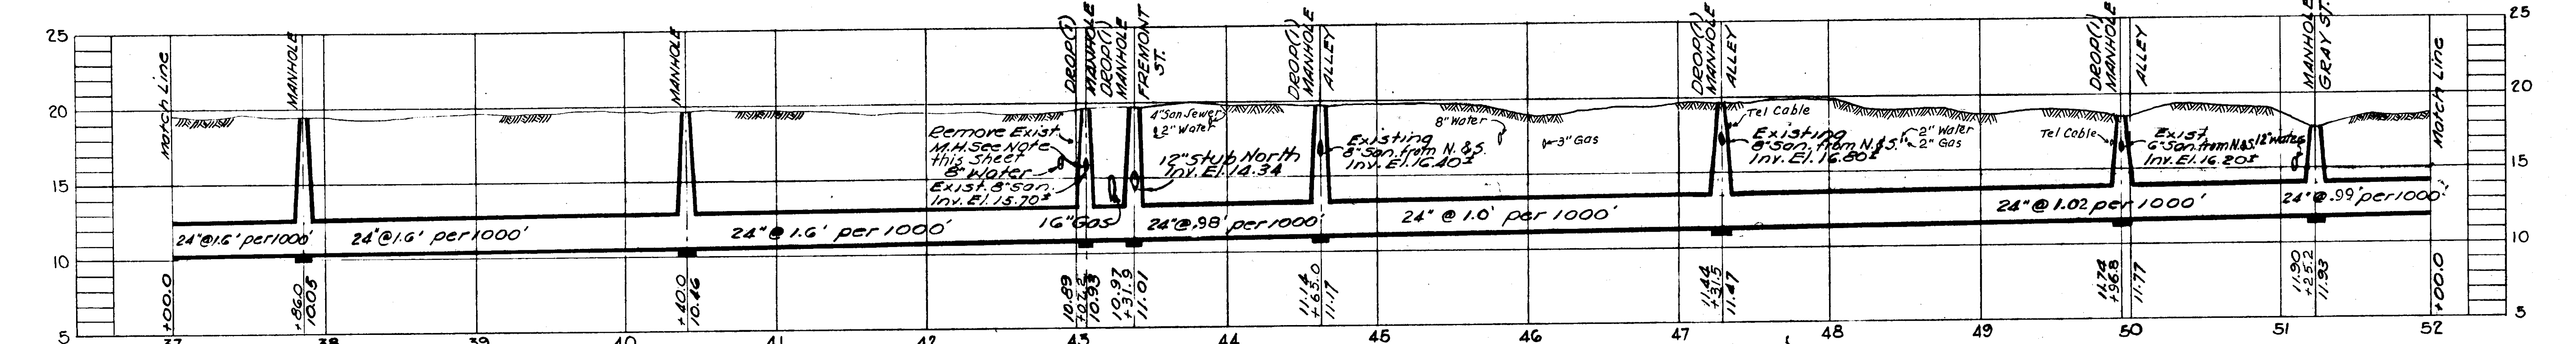 25
20
15
10
5
Match Line
MANHOLE
MANHOLE
DROP(1)
MANHOLE
DROP(1)
MANHOLE
FREMONT
ST.
DROP(1)
MANHOLE
ALLEY
DROP(1)
MANHOLE
ALLEY
DROP(1)
MANHOLE
ALLEY
MANHOLE
GRAY ST.
Match Line
25
20
15
10
5
Remove Exist.
M.H. See Note
this Sheet
8" Water
Exist. 8" San.
Inv. El. 15.70±
16" Gas
4" San Sewer
2" Water
12" Stub North
Inv. El. 14.34
Existing
8" San. from N. & S.
Inv. El. 16.40±
8" Water
3" Gas
Tel Cable
Existing
8" San. from N. & S.
Inv. El. 16.80±
2" Water
2" Gas
Tel Cable
Exist.
6" San. from N. & S.
Inv. El. 16.20±
12" Water
24" @ 1.6' per 1000'
24" @ 1.6' per 1000'
24" @ 1.6' per 1000'
24" @ .98' per 1000'
24" @ 1.0' per 1000'
24" @ 1.02 per 1000'
24" @ .99' per 1000'
+00.0
+86.0
10.05
+40.0
10.46
10.89
10.93
10.97
+31.9
11.01
11.14
+65.0
11.17
11.44
+31.5
11.47
11.74
+96.8
11.77
11.90
+25.2
11.93
+00.0
37
38
39
40
41
42
43
44
45
46
47
48
49
50
51
52